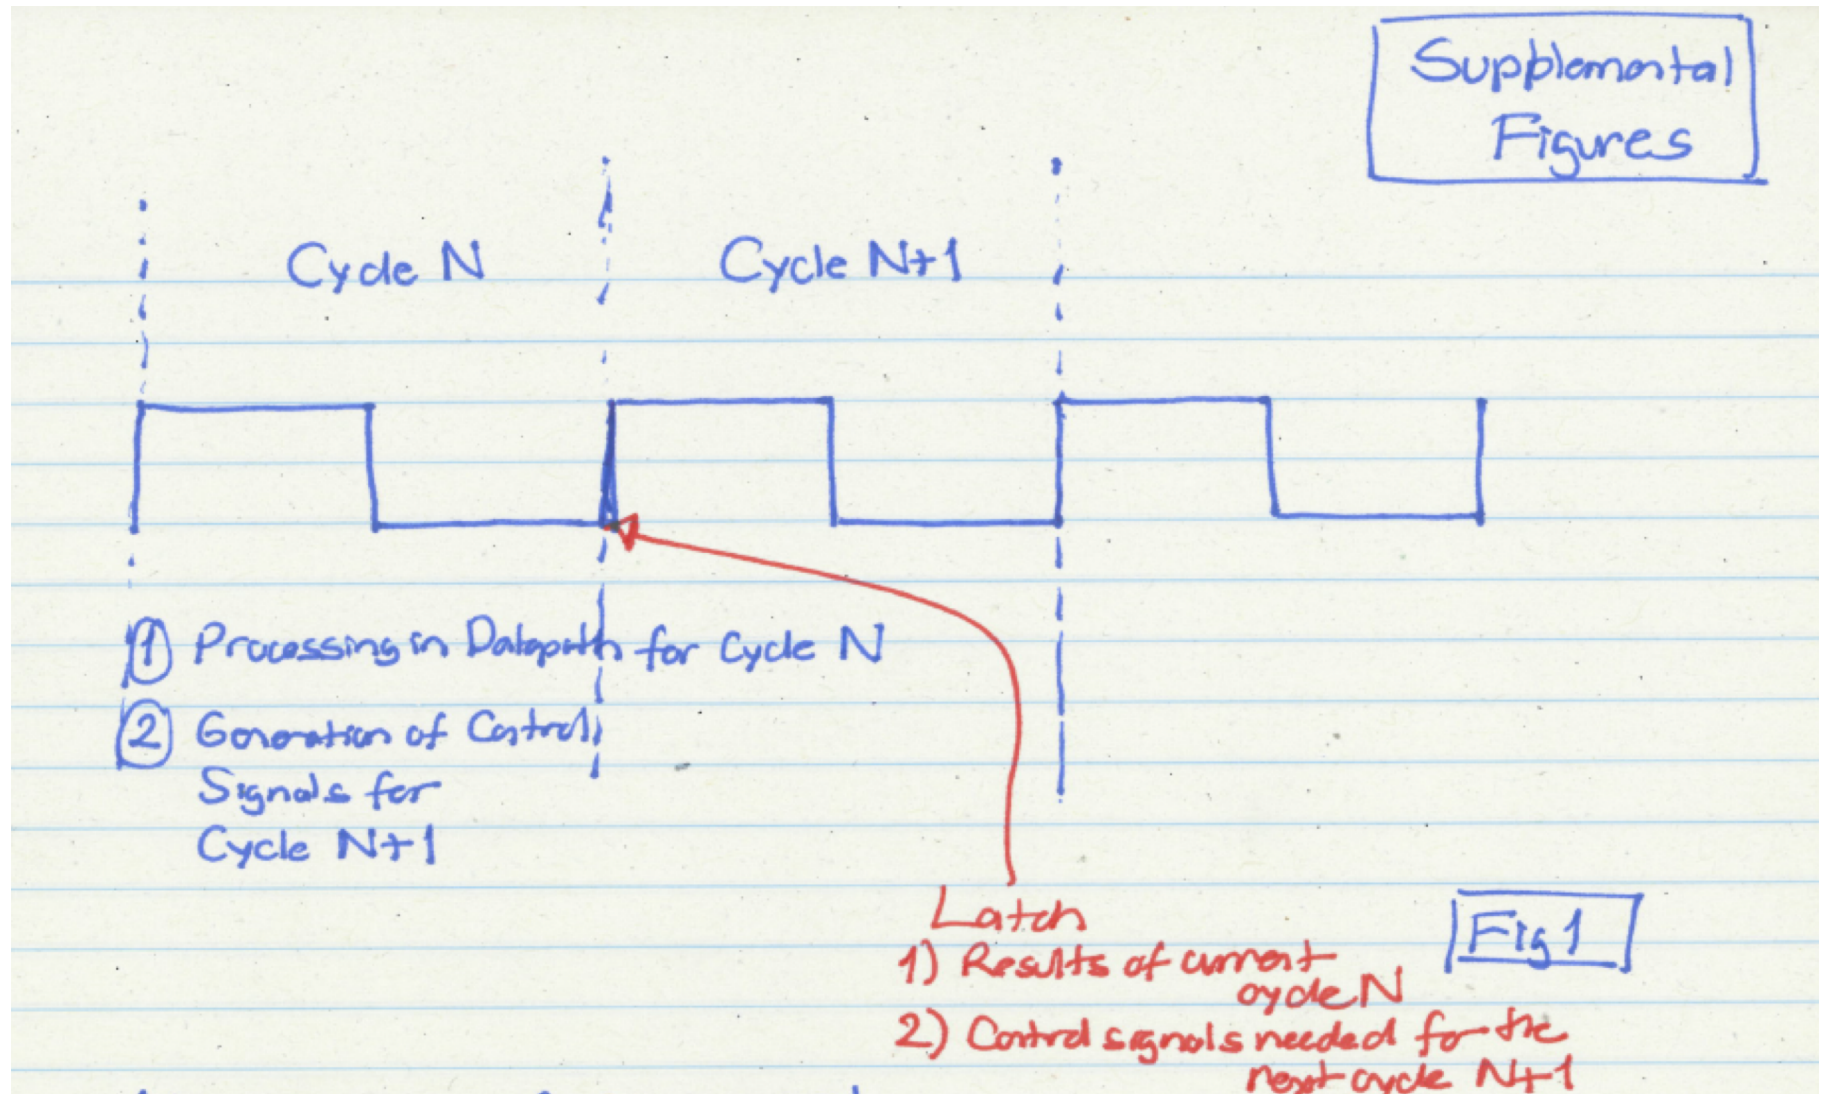 Supplemental
Figures
Cycle N
Cycle N+1
① Processing in Datapath for Cycle N
② Generation of Control
Signals for
Cycle N+1
Latch
1) Results of current
cycle N
2) Control signals needed for the
next cycle N+1
Fig 1